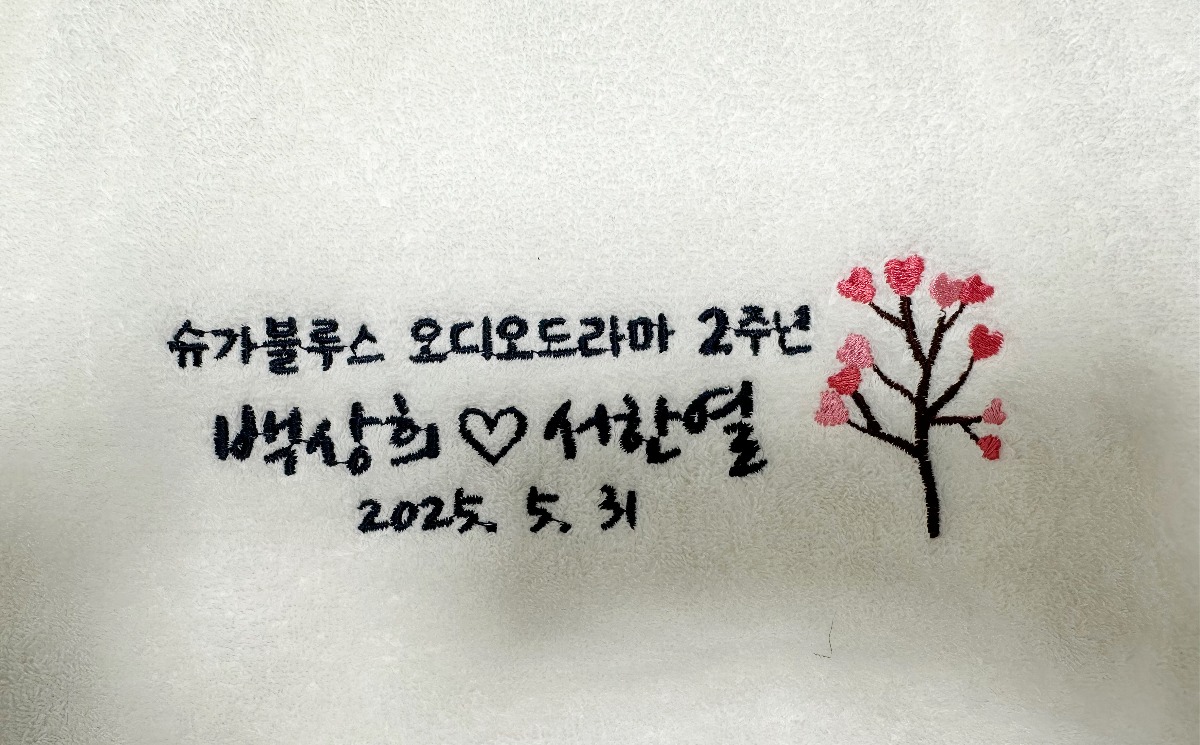 슈가블루스 오디오드라마 2주년
백상희♡서한열
2025. 5. 31